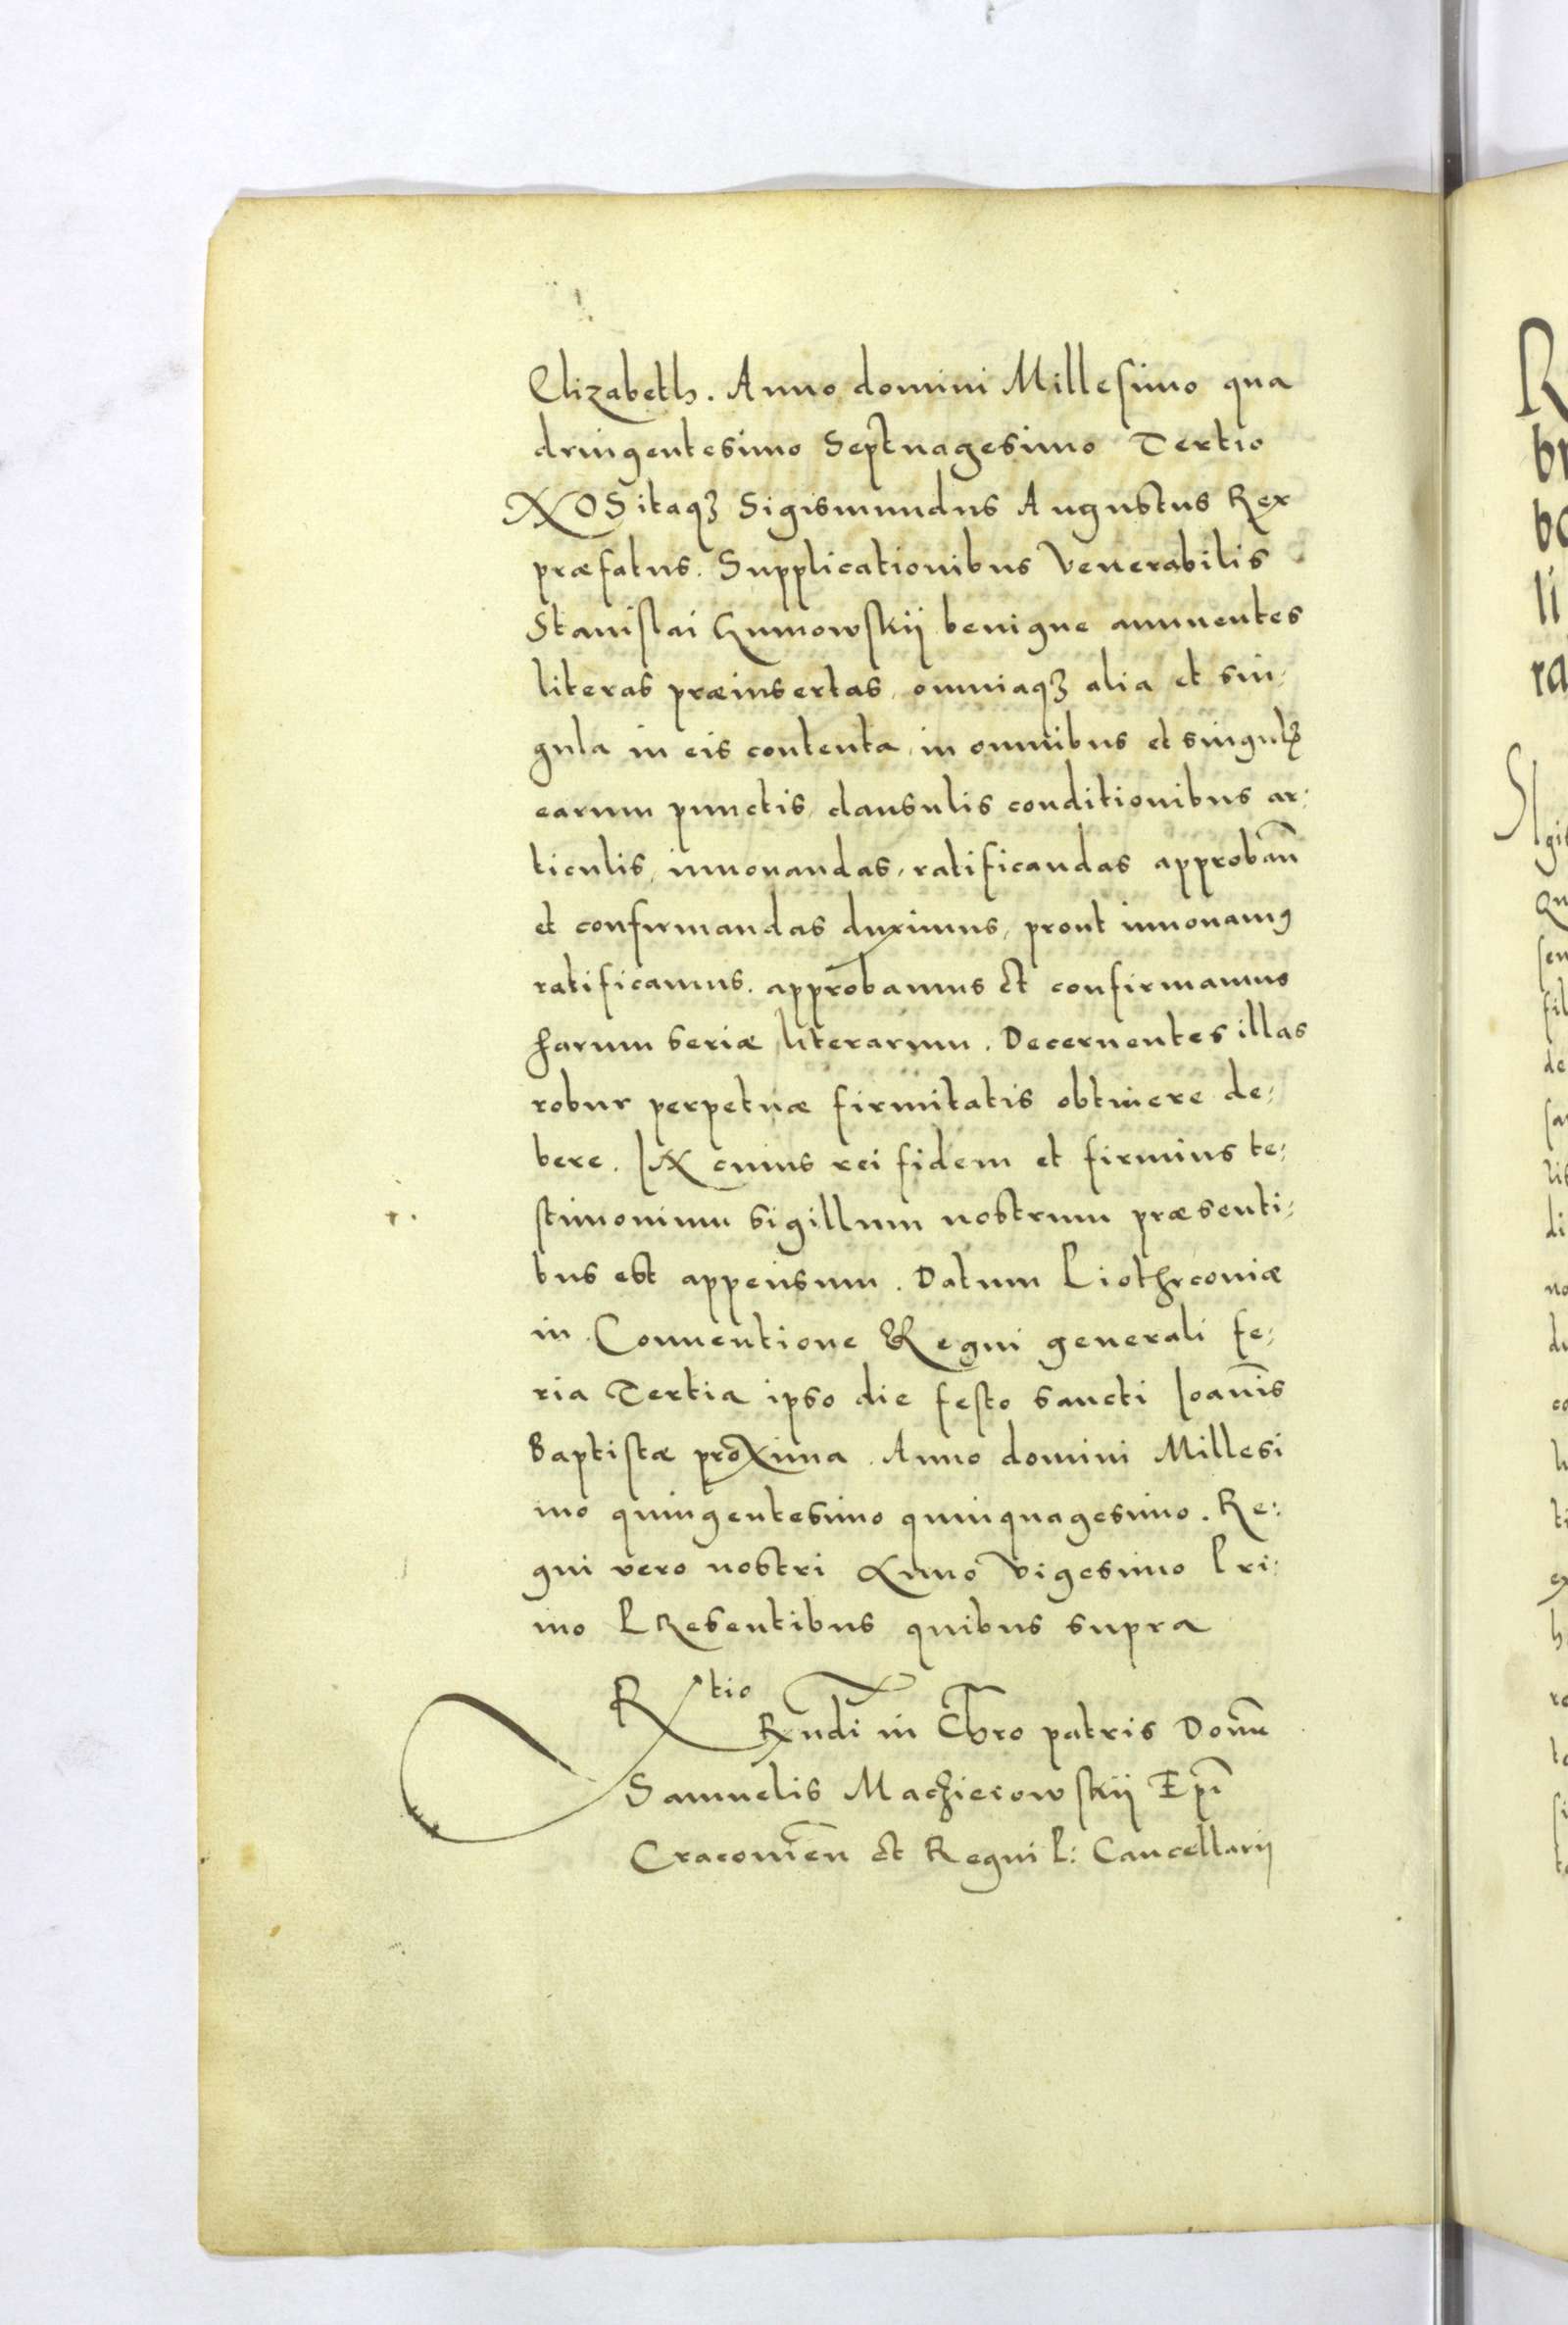 Elizabeth. Anno domini Millesimo qua
dringentesimo Septuagesimo Tertio
NOS itaqꝫ Sigismundus Augustus Rex
præfatus. Supplicationibus Venerabilis
Stanislai Gumowskij benigne annuentes
literas præinsertas, omniaqꝫ alia et sin:
gula in eis contenta, in omnibus et singulꝫ
earum punctis, clausulis conditionibus ar:
ticulis, innouandas, ratificandas approban̄
et confirmandas duximus, prout innouamꝰ
ratificamus. approbamus et confirmamus
harum seriæ literarum. Decernentes illas
robur perpetuæ firmitatis obtinere de:
bere. IN cuius rei fidem et firmius te:
stimonium sigillum nostrum præsenti:
bus est appensum. Datum Piothrconiæ
in Conuentione Regni generali fe:
ria Tertia ipso die festo sancti Ioan̄is
Baptistæ proxima. Anno domini Millesi
mo quingentesimo quinquagesimo. Re:
gni vero nostri Anno Vigesimo Pri:
mo PResentibus quibus supra
Rtio
Rn̄di in Chr̄o patris Domi
Samuelis Maczieiowskij Epī
Cracovien̄ et Regni P: Cancellarij
R
b
li
ra